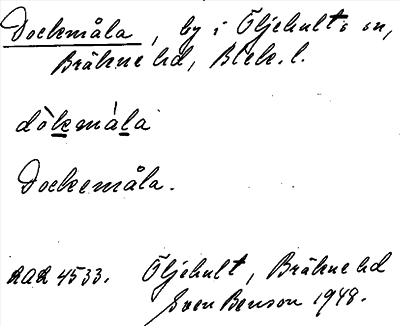 Dockmåla, by i Öljehults sn,
Bräkne hd, Blek. l.
dò̱kemá̱la
Dockemåla.
RAÄ 4533. Öljehult, Bräkne hd
Sven Benson 1948.